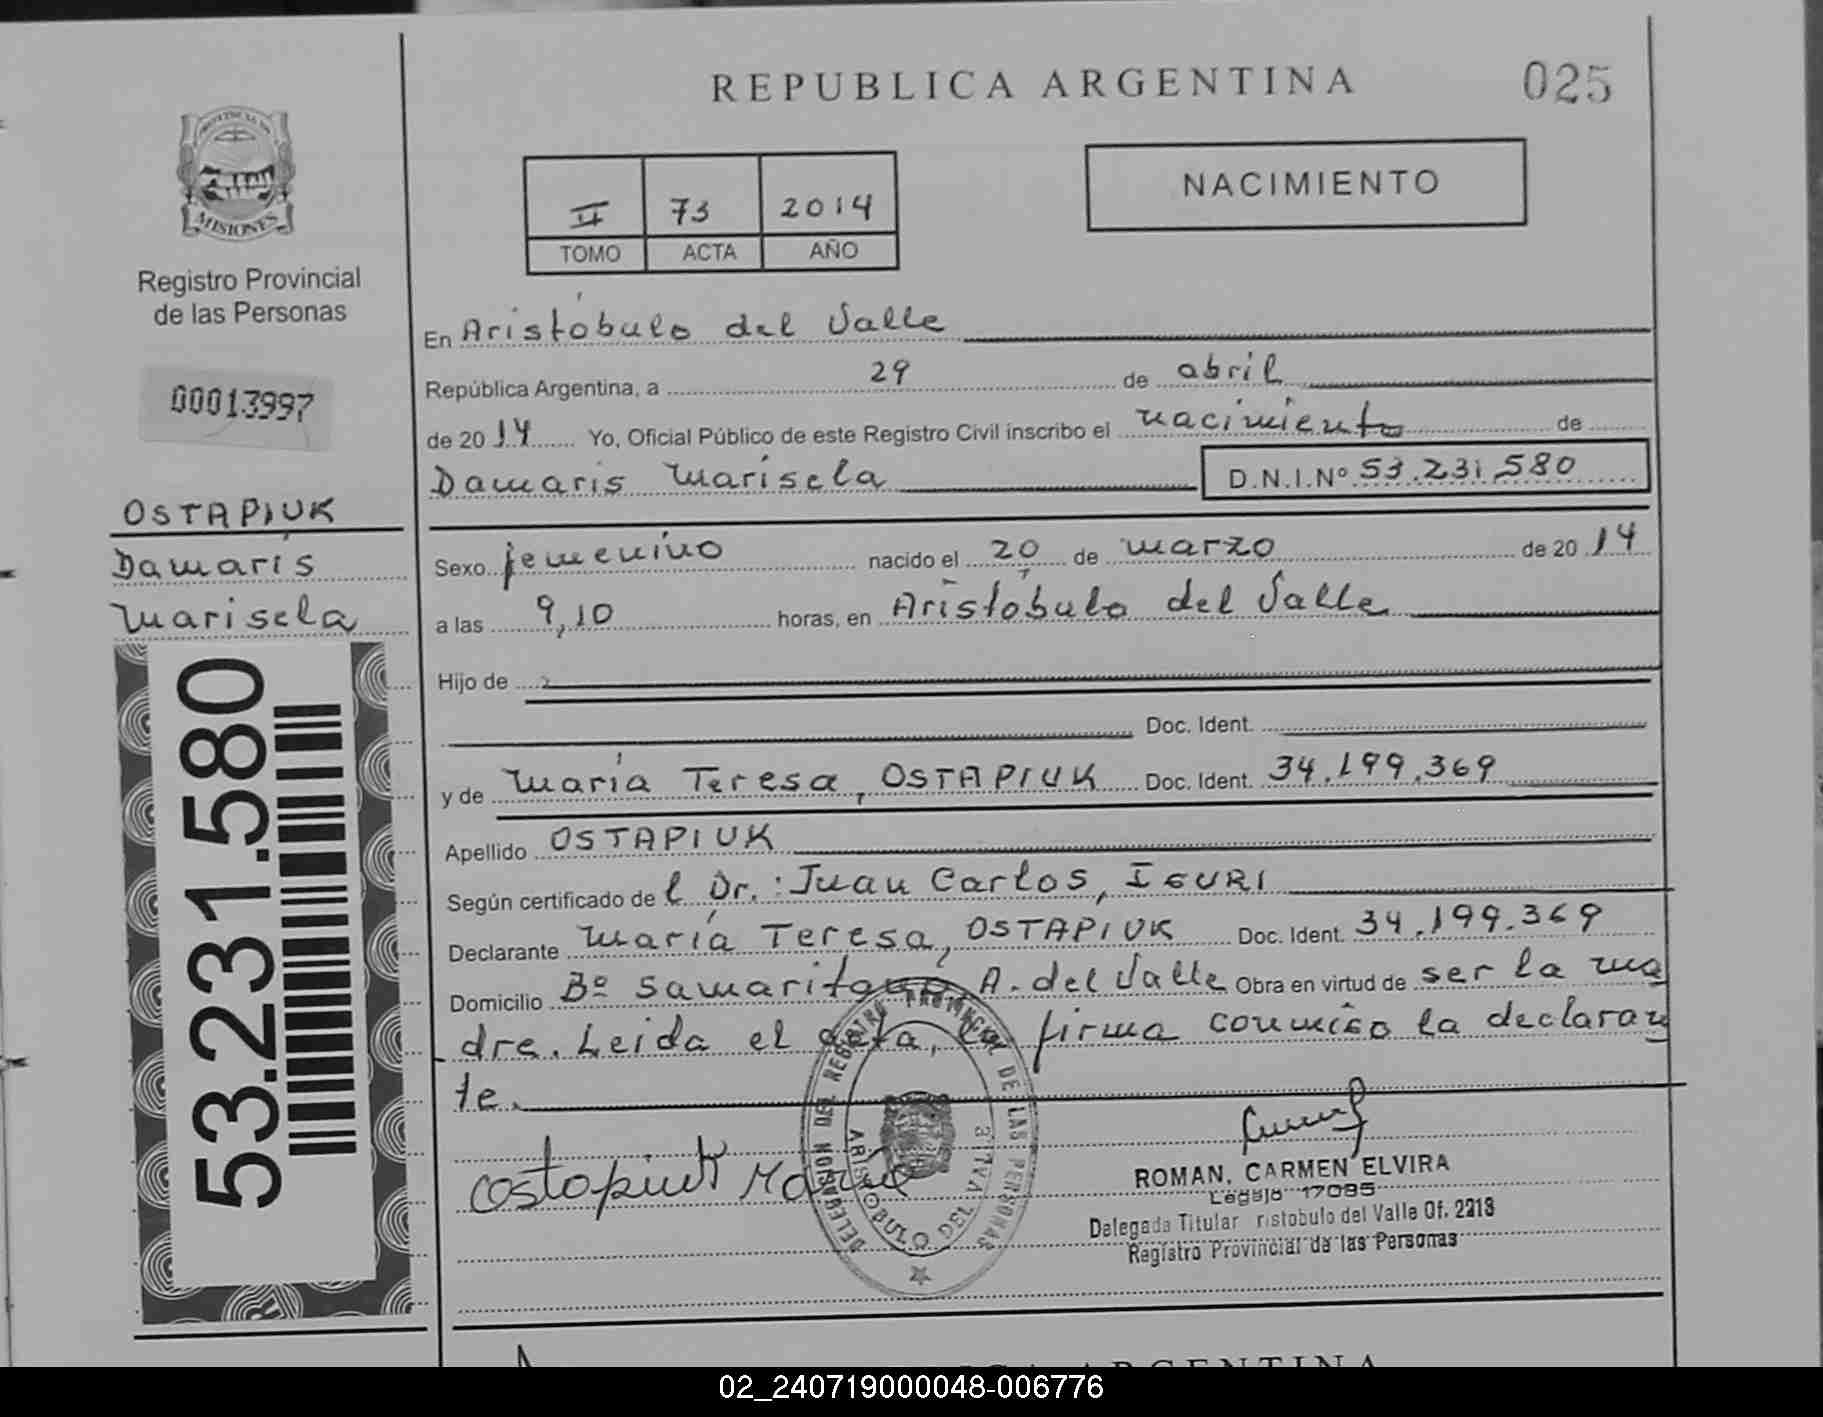 REPUBLICA ARGENTINA
025
PROVINCIA DE
MISIONES
Registro Provincial
de las Personas
00013997
OSTAPIUK
Damaris
Marisela
53.231.580
II 73 2014
TOMO ACTA AÑO
NACIMIENTO
En Aristóbulo del Valle
República Argentina, a 29 de abril
de 2014 Yo, Oficial Público de este Registro Civil inscribo el nacimiento de
Damaris Marisela D.N.I.Nº 53.231.580
Sexo femenino nacido el 20 de marzo de 2014
a las 9,10 horas, en Aristóbulo del Valle
Hijo de
Doc. Ident.
y de María Teresa, OSTAPIUK Doc. Ident. 34.199.369
Apellido OSTAPIUK
Según certificado de l Dr.: Juan Carlos, IGURI
Declarante María Teresa, OSTAPIUK Doc. Ident. 34.199.369
Domicilio Bº Samaritano A. del Valle Obra en virtud de ser la ma
dre. Leida el acta, la firma conmigo la declaran
te.
DELEGACION DEL REGISTRO PROVINCIAL DE LAS PERSONAS
ARISTOBULO DEL VALLE
ROMAN, CARMEN ELVIRA
Legajo 17095
Delegada Titular ristobulo del Valle Of. 2213
Registro Provincial de las Personas
ARGENTINA
02_240719000048-006776